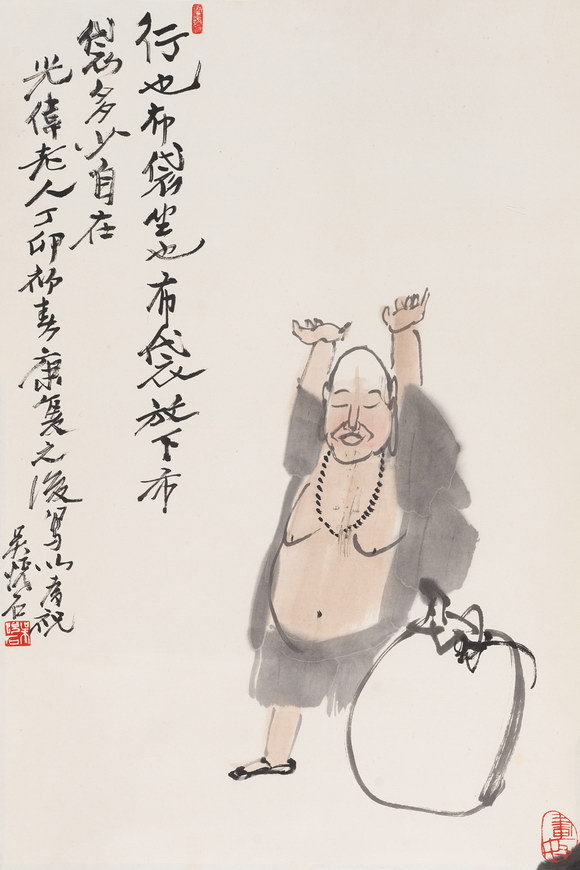 行也布袋坐也布袋放下布
袋多少自在
光偉老人丁卯初春康復之後寫此為祝
吳㦤石